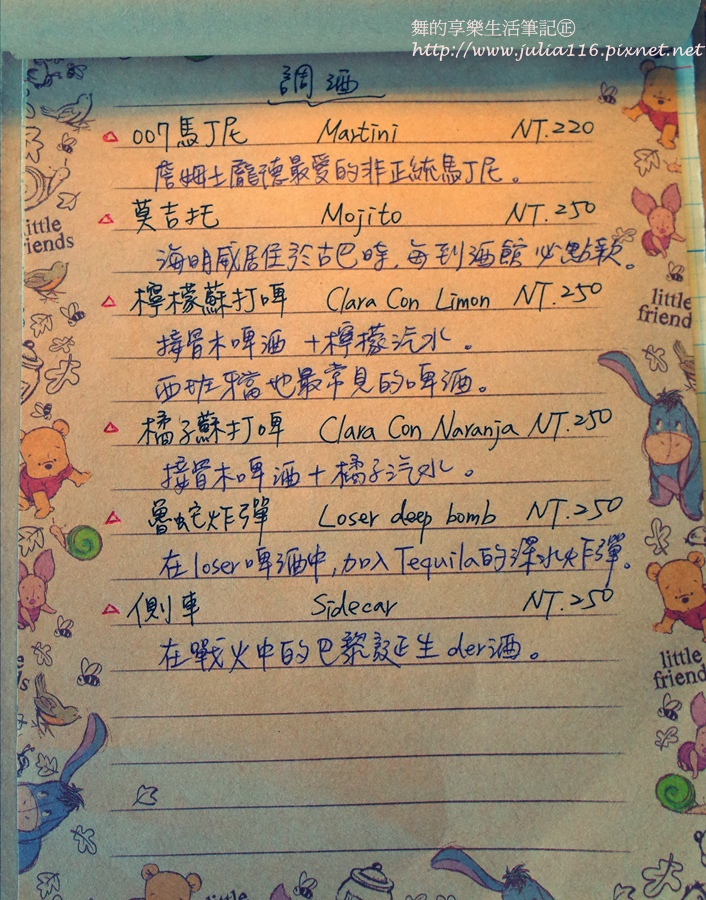 舞的享樂生活筆記㊣
http://www.julia116.pixnet.net
調酒
007馬丁尼 Martini NT.220
詹姆士龐德最愛的非正統馬丁尼。
莫吉托 Mojito NT.250
海明威居住於古巴時,每到酒館必點款。
檸檬蘇打啤 Clara Con Limon NT.250
接骨木啤酒+檸檬汽水。
西班牙當地最常見的啤酒。
橘子蘇打啤 Clara Con Naranja NT.250
接骨木啤酒+橘子汽水。
魯蛇炸彈 Loser deep bomb NT.250
在loser啤酒中,加入Tequila的深水炸彈。
側車 Sidecar NT.250
在戰火中的巴黎誕生der酒。
little
friends
little
friend
little
friend
little